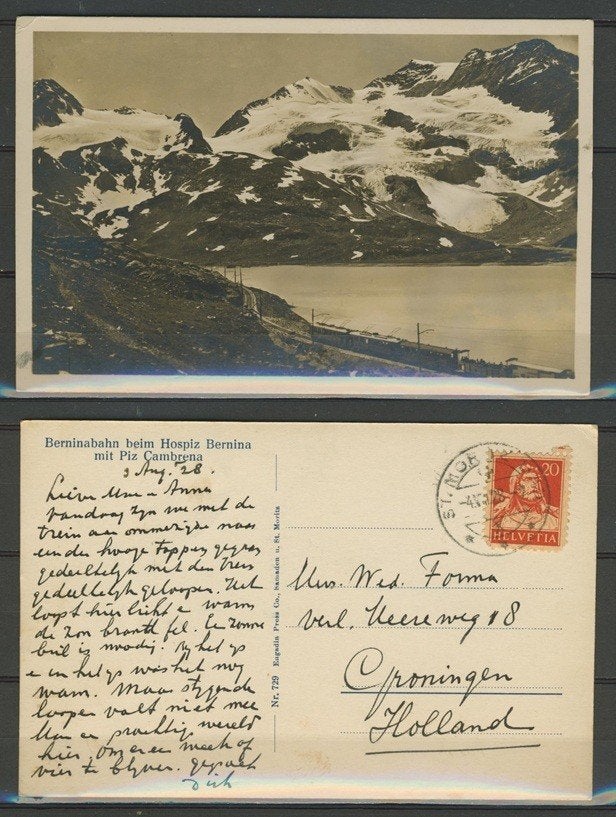 Berninabahn beim Hospiz Bernina
mit Piz Cambrena
3 Aug. '28.
Lieve Anna
vandaag zijn we met de
trein aan naar
een der hooge toppen
gedeeltelijk met den trein
gedeeltelijk geloopen. Het
loopt hier licht en warm
de zon brandt fel. Een zonne
bril is noodig. Bij het ijs
en in het ijs was het nog
warm. Maar stijgende
loopen valt niet mee
een prachtige wereld
hier, om er een week of
vier te blijven. gegroet
Dirk
Nr. 729 Engadin Press Co., Samaden u. St. Moritz
ST. MOR
20
HELVETIA
Mevr. Wed. Forma
verl. Heereweg 18
Groningen
Holland